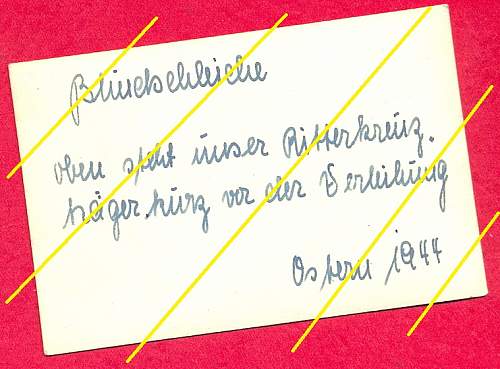 Blindschleiche
oben steht unser Ritterkreuz-
träger kurz vor der Verleihung
Ostern 1944